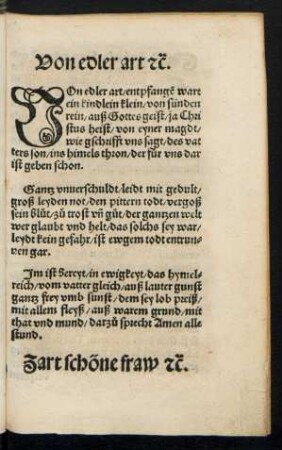 Von edler art ⁊č.
VOn edler art/entpfangẽ wart
ein kindlein klein/von sünden
rein/auß Gottes geist/ja Chri
stus heist/von eyner magdt/
wie gschrifft vns sagt/des vat
ters son/ins himels thron/der für vns dar
ist gehen schon.
Gantz vnuerschuldt/leidt mit gedult/
groß leyden not/den pittern todt/vergoß
sein blůt/zů trost vñ gůt/der gantzen welt
wer glaubt vnd helt/das solchs sey war/
leydt kein gefahr/ist ewgem todt entrun-
nen gar.
Im ist bereyt/in ewigkeyt/das hymel-
reich/vom vatter gleich/auß lauter gunst
gantz frey vmb sunst/dem sey lob preiß/
mit allem fleyß/auß warem grund/mit
that vnd mund/darzů sprecht Amen alle
stund.
Zart schöne fraw ⁊č.